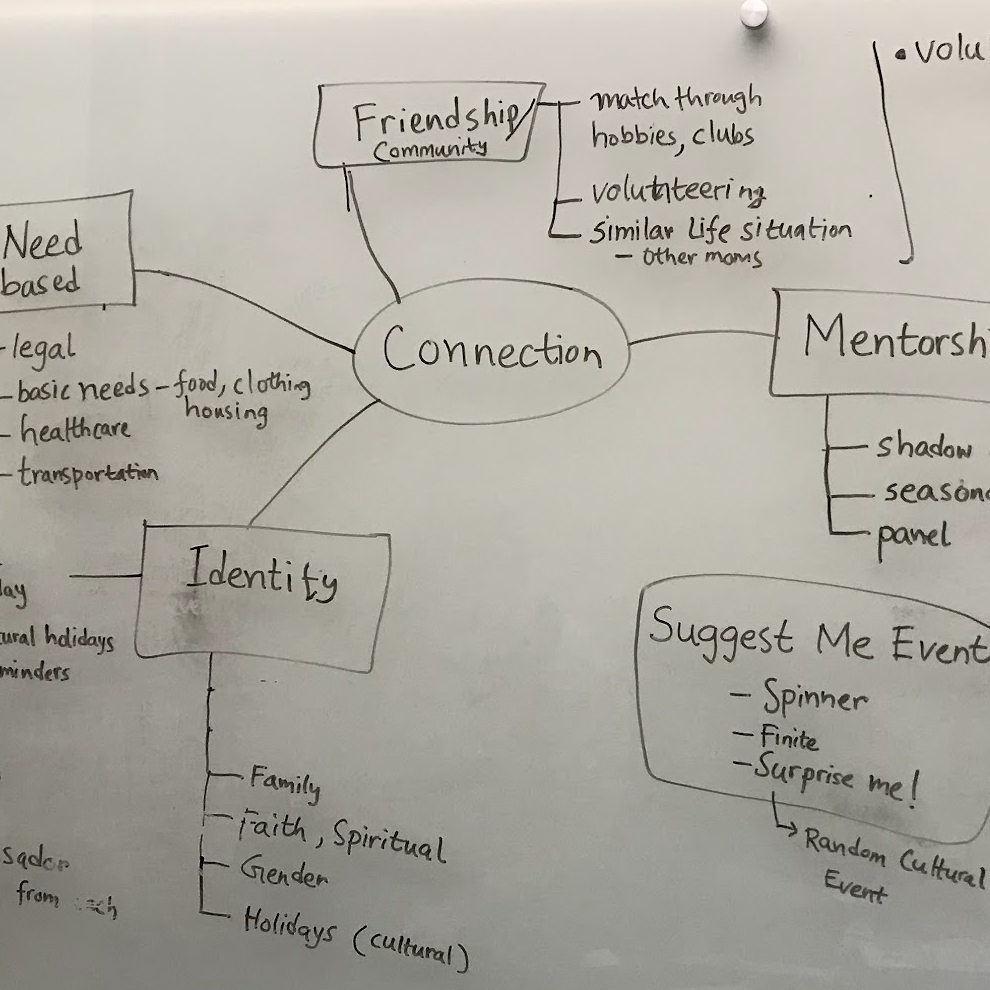 • volu
Friendship/
Community
match through
hobbies, clubs
volutnteering
similar life situation
- other moms
Need
based
- legal
- basic needs - food, clothing
housing
- healthcare
- transportation
Connection
Mentorshi
shadow
season
panel
Identity
ay
ural holidays
minders
Family
Faith, Spiritual
Gender
Holidays (cultural)
sador
from
Suggest Me Event
- Spinner
- Finite
- Surprise me!
Random Cultural
Event